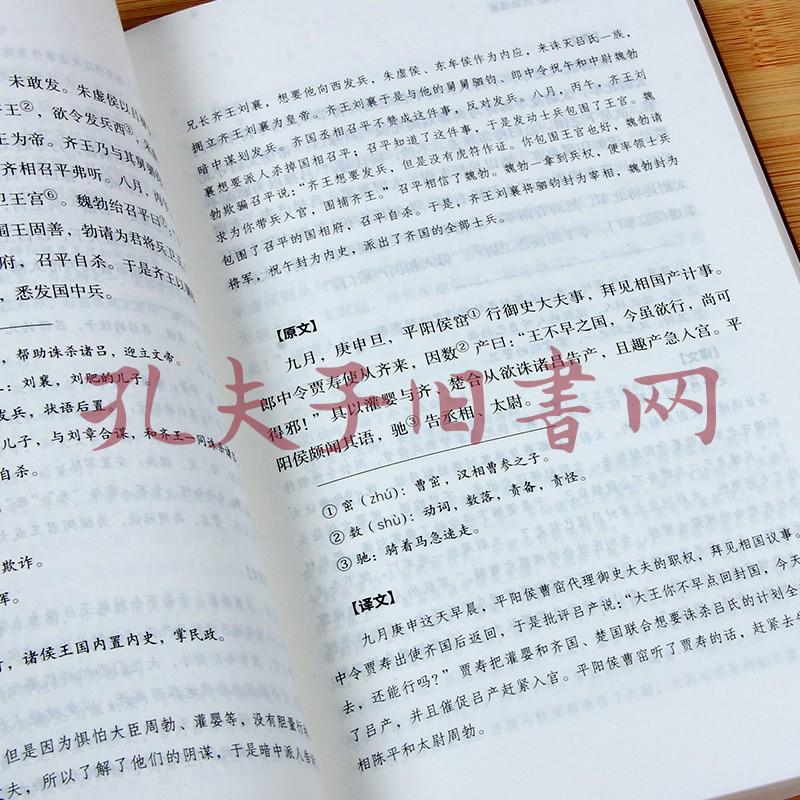 未敢发。朱虚侯以吕
齐王②,欲令发兵西③
王为帝。齐王乃与其舅驷
齐相召平弗听。八月,丙
卫王宫⑥。魏勃绐召平曰⑦
围王固善,勃请为君将兵卫王
府,召平自杀。于是齐王以驷
悉发国中兵。
帮助诛杀诸吕,迎立文帝。
:刘襄,刘肥的儿子。
发兵,状语后置。
儿子,与刘章合谋,和齐王一同诛杀诸
自杀。
欺诈。
军。
诸侯王国内置内史,掌民政。
但是因为惧怕大臣周勃、灌婴等,没有胆量行
夫,所以了解了他们的阴谋,于是暗中派人告诉
兄长齐王刘襄,想要他向西发兵,朱虚侯、东牟侯作为内应,来诛灭吕氏一族,
拥立齐王刘襄为皇帝。齐王刘襄于是与他的舅舅驷钧、郎中令祝午和中尉魏勃
暗中谋划发兵。齐国丞相召平不赞成这件事,反对发兵。八月,丙午,齐王刘
襄想要派人杀掉国相召平;召平知道了这件事,于是发动士兵包围了王宫。魏
勃欺骗召平说:“齐王想要发兵,但是没有虎符作证。你包围王宫也好,魏勃请
求为你带兵入宫,围捕齐王。”召平相信了魏勃。魏勃一拿到兵权,便率领士兵
包围了召平的国相府,召平自杀。于是,齐王刘襄将驷钧封为宰相,魏勃封为
将军,祝午封为内史,派出了齐国的全部士兵。
【原文】
九月,庚申旦,平阳侯窋①行御史大夫事,拜见相国产计事。
郎中令贾寿使从齐来,因数②产曰:“王不早之国,今虽欲行,尚可
得邪!”具以灌婴与齐、楚合从欲诛诸吕告产,且趣产急入宫。平
阳侯颇闻其语,驰③告丞相、太尉。
①窋(zhú):曹窋,汉相曹参之子。
②数(shǔ):动词,数落,责备,责怪。
③驰:骑着马急速走。
【译文】
九月庚申这天早晨,平阳侯曹窋代理御史大夫的职权,拜见相国议事。
中令贾寿出使齐国后返回,于是批评吕产说:“大王你不早点回封国,今天
去,还能行吗?”贾寿把灌婴和齐国、楚国联合想要诛杀吕氏的计划全
了吕产,并且催促吕产赶紧入宫。平阳侯曹窋听了贾寿的话,赶紧去
相陈平和太尉周勃。
孔夫子旧书网